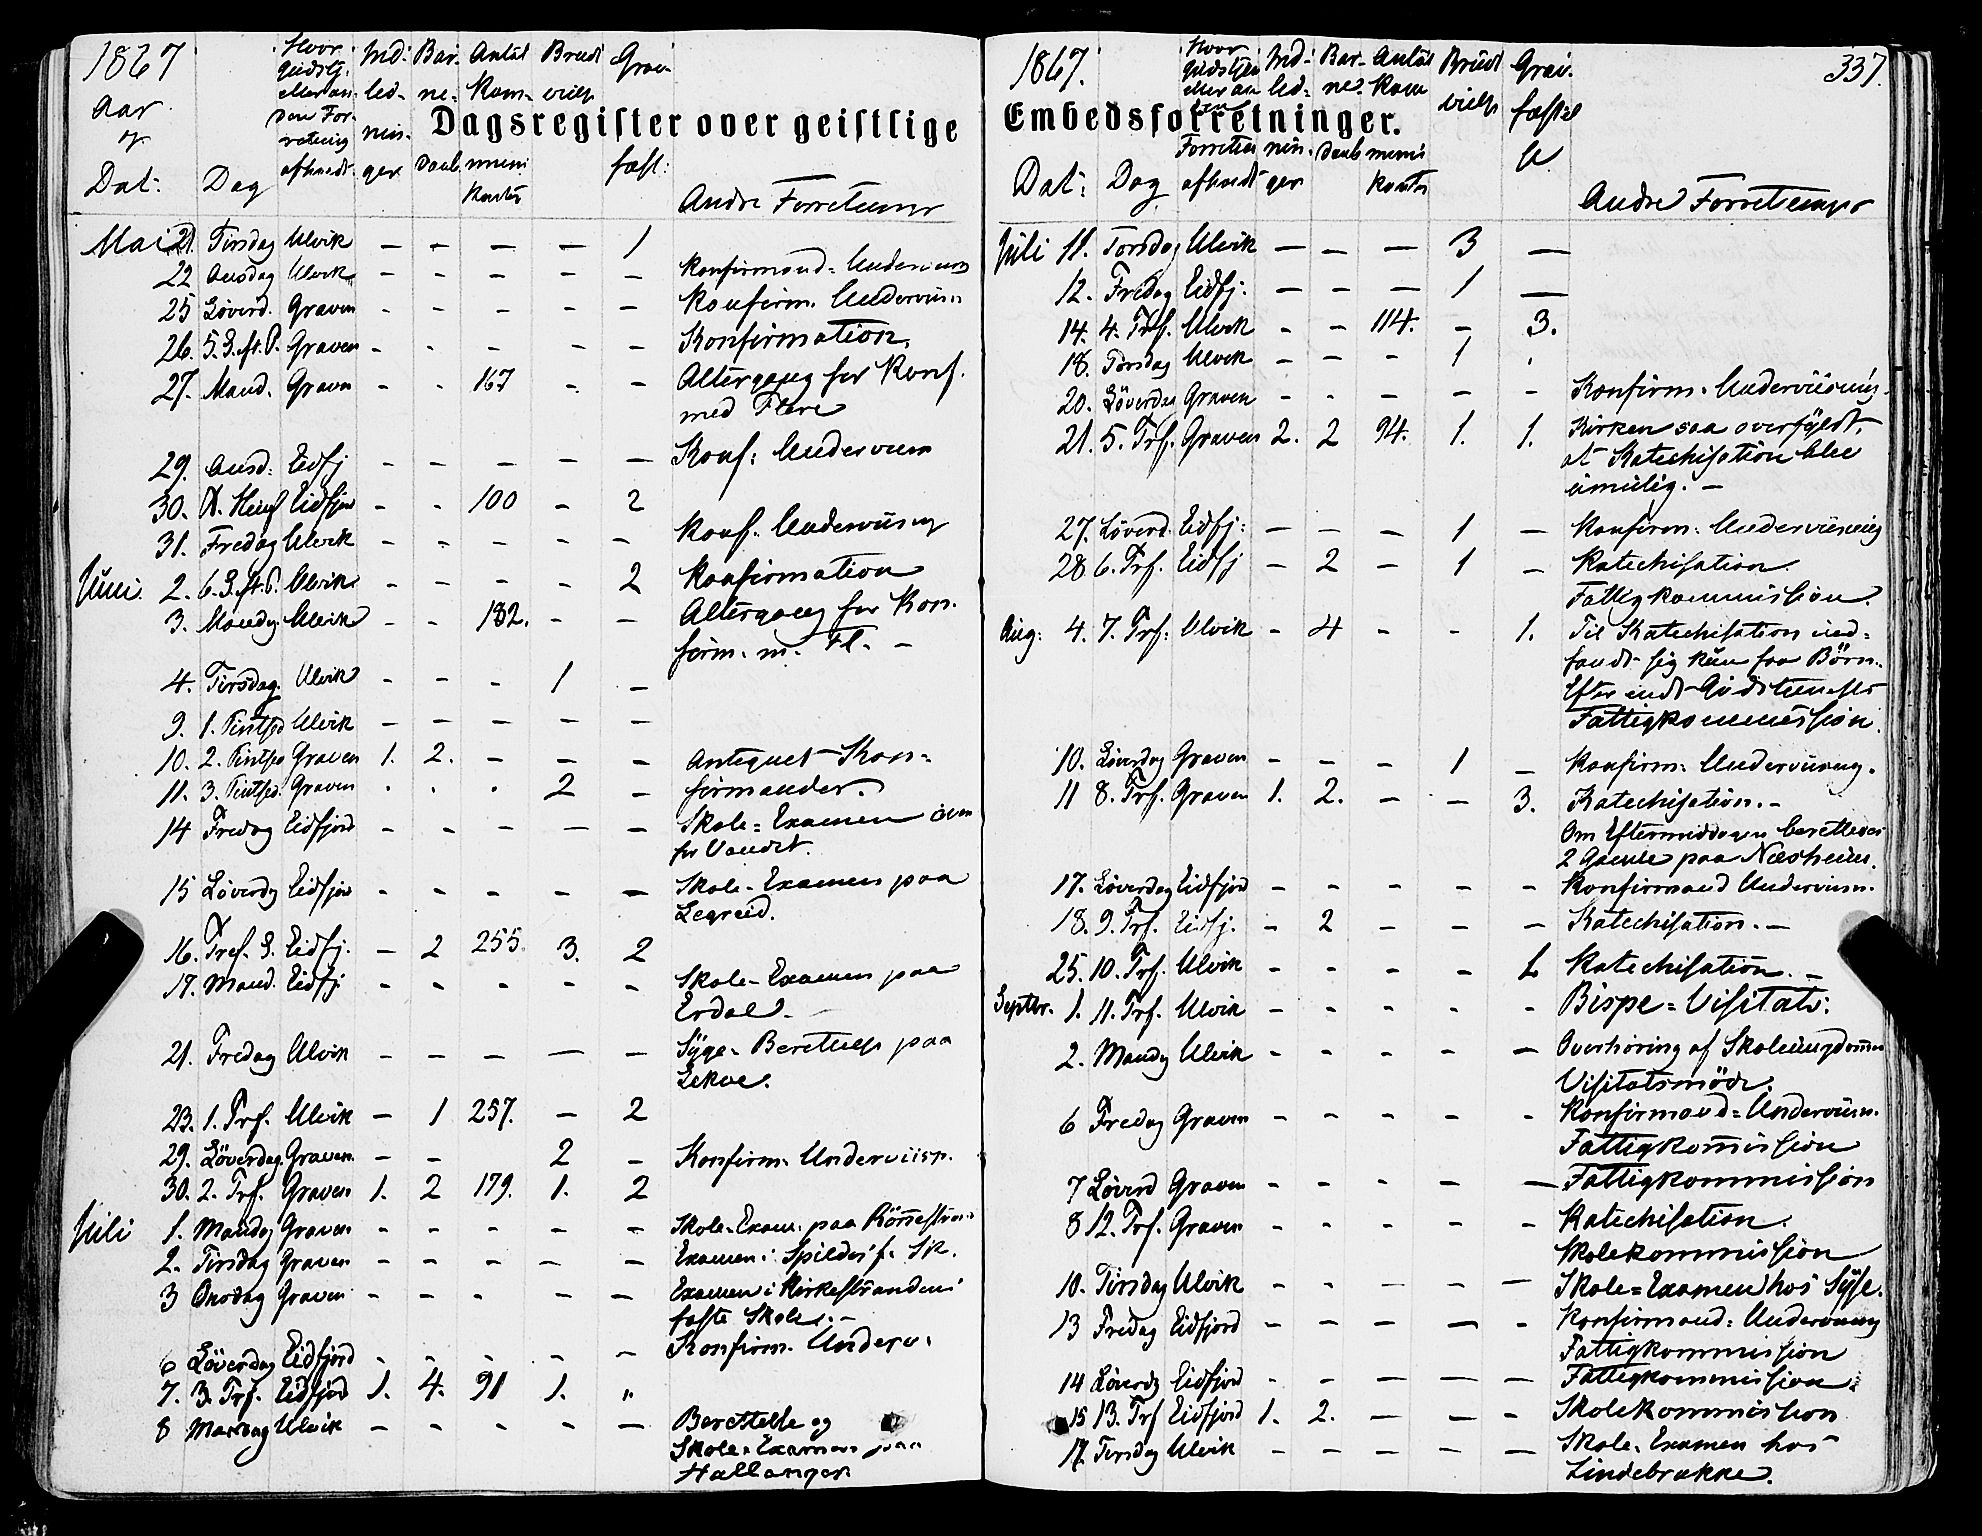 1867
Aar
og
Dat: Dag Hvor Gudstj. eller anden Forretning afholdt. Indledninger Barnedaab Antal Kommunikanter Brudevielse Gravfæst:
Dagsregister over geistlige
Andre Forretninger
Mai 21. Tirsdag Ulvik — — — — 1
22 Onsdag Ulvik - - - - - Konfirmand-Underviisn
25 Löverd. Graven - - - - - Konfirm. Underviisn
26. 5. S. ft. P. Graven - - - - - Konfirmation.
27. Mand. Graven - - 167 - - Altergang for Konf.
med Flere
29. Onsd: Eidfj - - - - - Konf: Underviisn
30. Kr. Himf Eidfjor - - 100 - 2
31. Fredag Ulvik - - - - - Konf. Underviisning
Juni. 2. 6. S. ft. P. Ulvik - - - - 2 Konfirmation
3. Mandag Ulvik - - 182. - - Altergang for Kon-
firm. m. Fl. -
4. Tirsdag. Ulvik - - - 1 -
9. 1. Pintsed Ulvik - - - - -
10. 2. Pintsed Graven 1. 2. - - - Antegnet Kon-
11. 3. Pintsed. Graven . . . 2 - firmander.
14 Fredag Eidfjord - - - - - Skole-Examen oven
for Vandet.
15 Löverdg Eidfjor - - - - - Skole-Examen paa
Legreid.
16. Tref. S. Eidfj. - 2 255. 3. 2
17. Mand. Eidfj - - - - - Skole-Examen paa
Erdal. -
21. Fredag Ulvik - - - - - Syge-Berettelse paa
Lekve.
23. 1. Trf. Ulvik - 1 257. - 2
29. Löverdag. Graven - - 2 - Konfirm. Underviisn.
30. 2. Trf. Graven 1. 2 179. 1. 2
Juli 1. Mandag Graven - - - - - Skole-Exam. paa
2. Tirsdag Graven - - - - - Examen i Spildes f. Sk.
3 Onsdag Graven - - - - - Examen i Kirkestrandens
faste Skole. -
6 Löverdag Eidfjord - - - - - Konfirm. Underv:
7. 3. Trf. Eidfjord 1. 4. 91 1. "
8 Mandag Ulvik - - - - - Berettelse og
Skole-Examen paa
Hallanger
1867. 337.
Hvor Gudstjen eller anden Forretn afholdt Indledninger Barnedaab Antal Kommunikanter Brudevielse Gravfæstelse
Embedsforretninger.
Dat: Dag Andre Forretninger
Juli 11. Torsdag Ulvik — — — 3 —
12. Fredag Eidfj: — — — 1 —
14. 4. Trf. Ulvik - - 114. - 3.
18. Torsdag Ulvik - - - 1 .
20. Löverdag Graven - - - - - Konfirm. Underviisning.
21. 5. Trf. Graven 2. 2 94. 1. 1. Kirken saa overfyldt,
at Katechisation blev
umulig. -
27. Löverd. Eidfj: - - - 1 - Konfirm: Underviisning
28. 6. Trf. Eidfj - 2 - 1 - Katechisation.
Fattigkommission.
Aug: 4. 7. Trf: Ulvik - 4 - - 1. Til Katechisation ind-
fandt sig kun faa Börn.
Efter endt Gudstjeneste
Fattigkommission.
10. Löverdag Graven - - - 1 - Konfirm: Underviisning.
11 8. Trf. Graven 1. 2. - - 3. Katechisation. -
Om Eftermiddagen berettedes
2 Gamle paa Næsheim.
17. Löverdag Eidfjord - - - - - Konfirmand Underviisn.
18. 9. Trf. Eidfj. - 2 - - - Katechisation. -
25. 10. Trf. Ulvik - - - - 1 Katechisation. -
Septbr. 1. 11. Trf. Ulvik - - - - - Bispe-Visitats.
2. Mandag Ulvik - - - - - Overhöring af Skoleungdommen
Visitatsmöde.
6 Fredag Graven - - - - - Konfirmand-Underviisn.
Fattigkomission
7 Löverd Graven - - - - - Fattigkommission
8 12. Trf. Graven - - - - - Katechisation.
Skolekommission
10. Tirsdag Ulvik - - - - - Skole-Examen hos Syse.
13 Fredag Eidfjord - - - - - Konfirmand: Underviisning
Fattigkommission
14 Löverdg Eidfjord - - - - - Fattigkommission.
15 13. Trf Eidfjord 1. 2. - - - Skolekommission
17. Tirsdag Ulvik - - - - - Skole-Examen hos
Lindebrække.